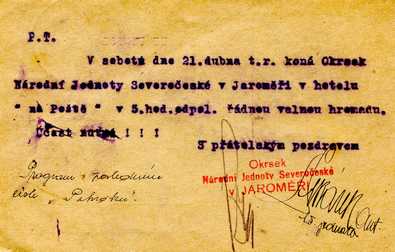 P.T.
V sobotu dne 21.dubna t.r. koná Okrsek
Národní Jednoty Severočeské v Jaroměři v hotelu
" na Poště " v 5.hod.odpol. řádnou valnou hromadu.
Účast nutná ! ! !
S přátelským pozdravem
Okrsek
Národní Jednoty Severočeské
v JAROMĚŘI
Program v posledním
čísle „